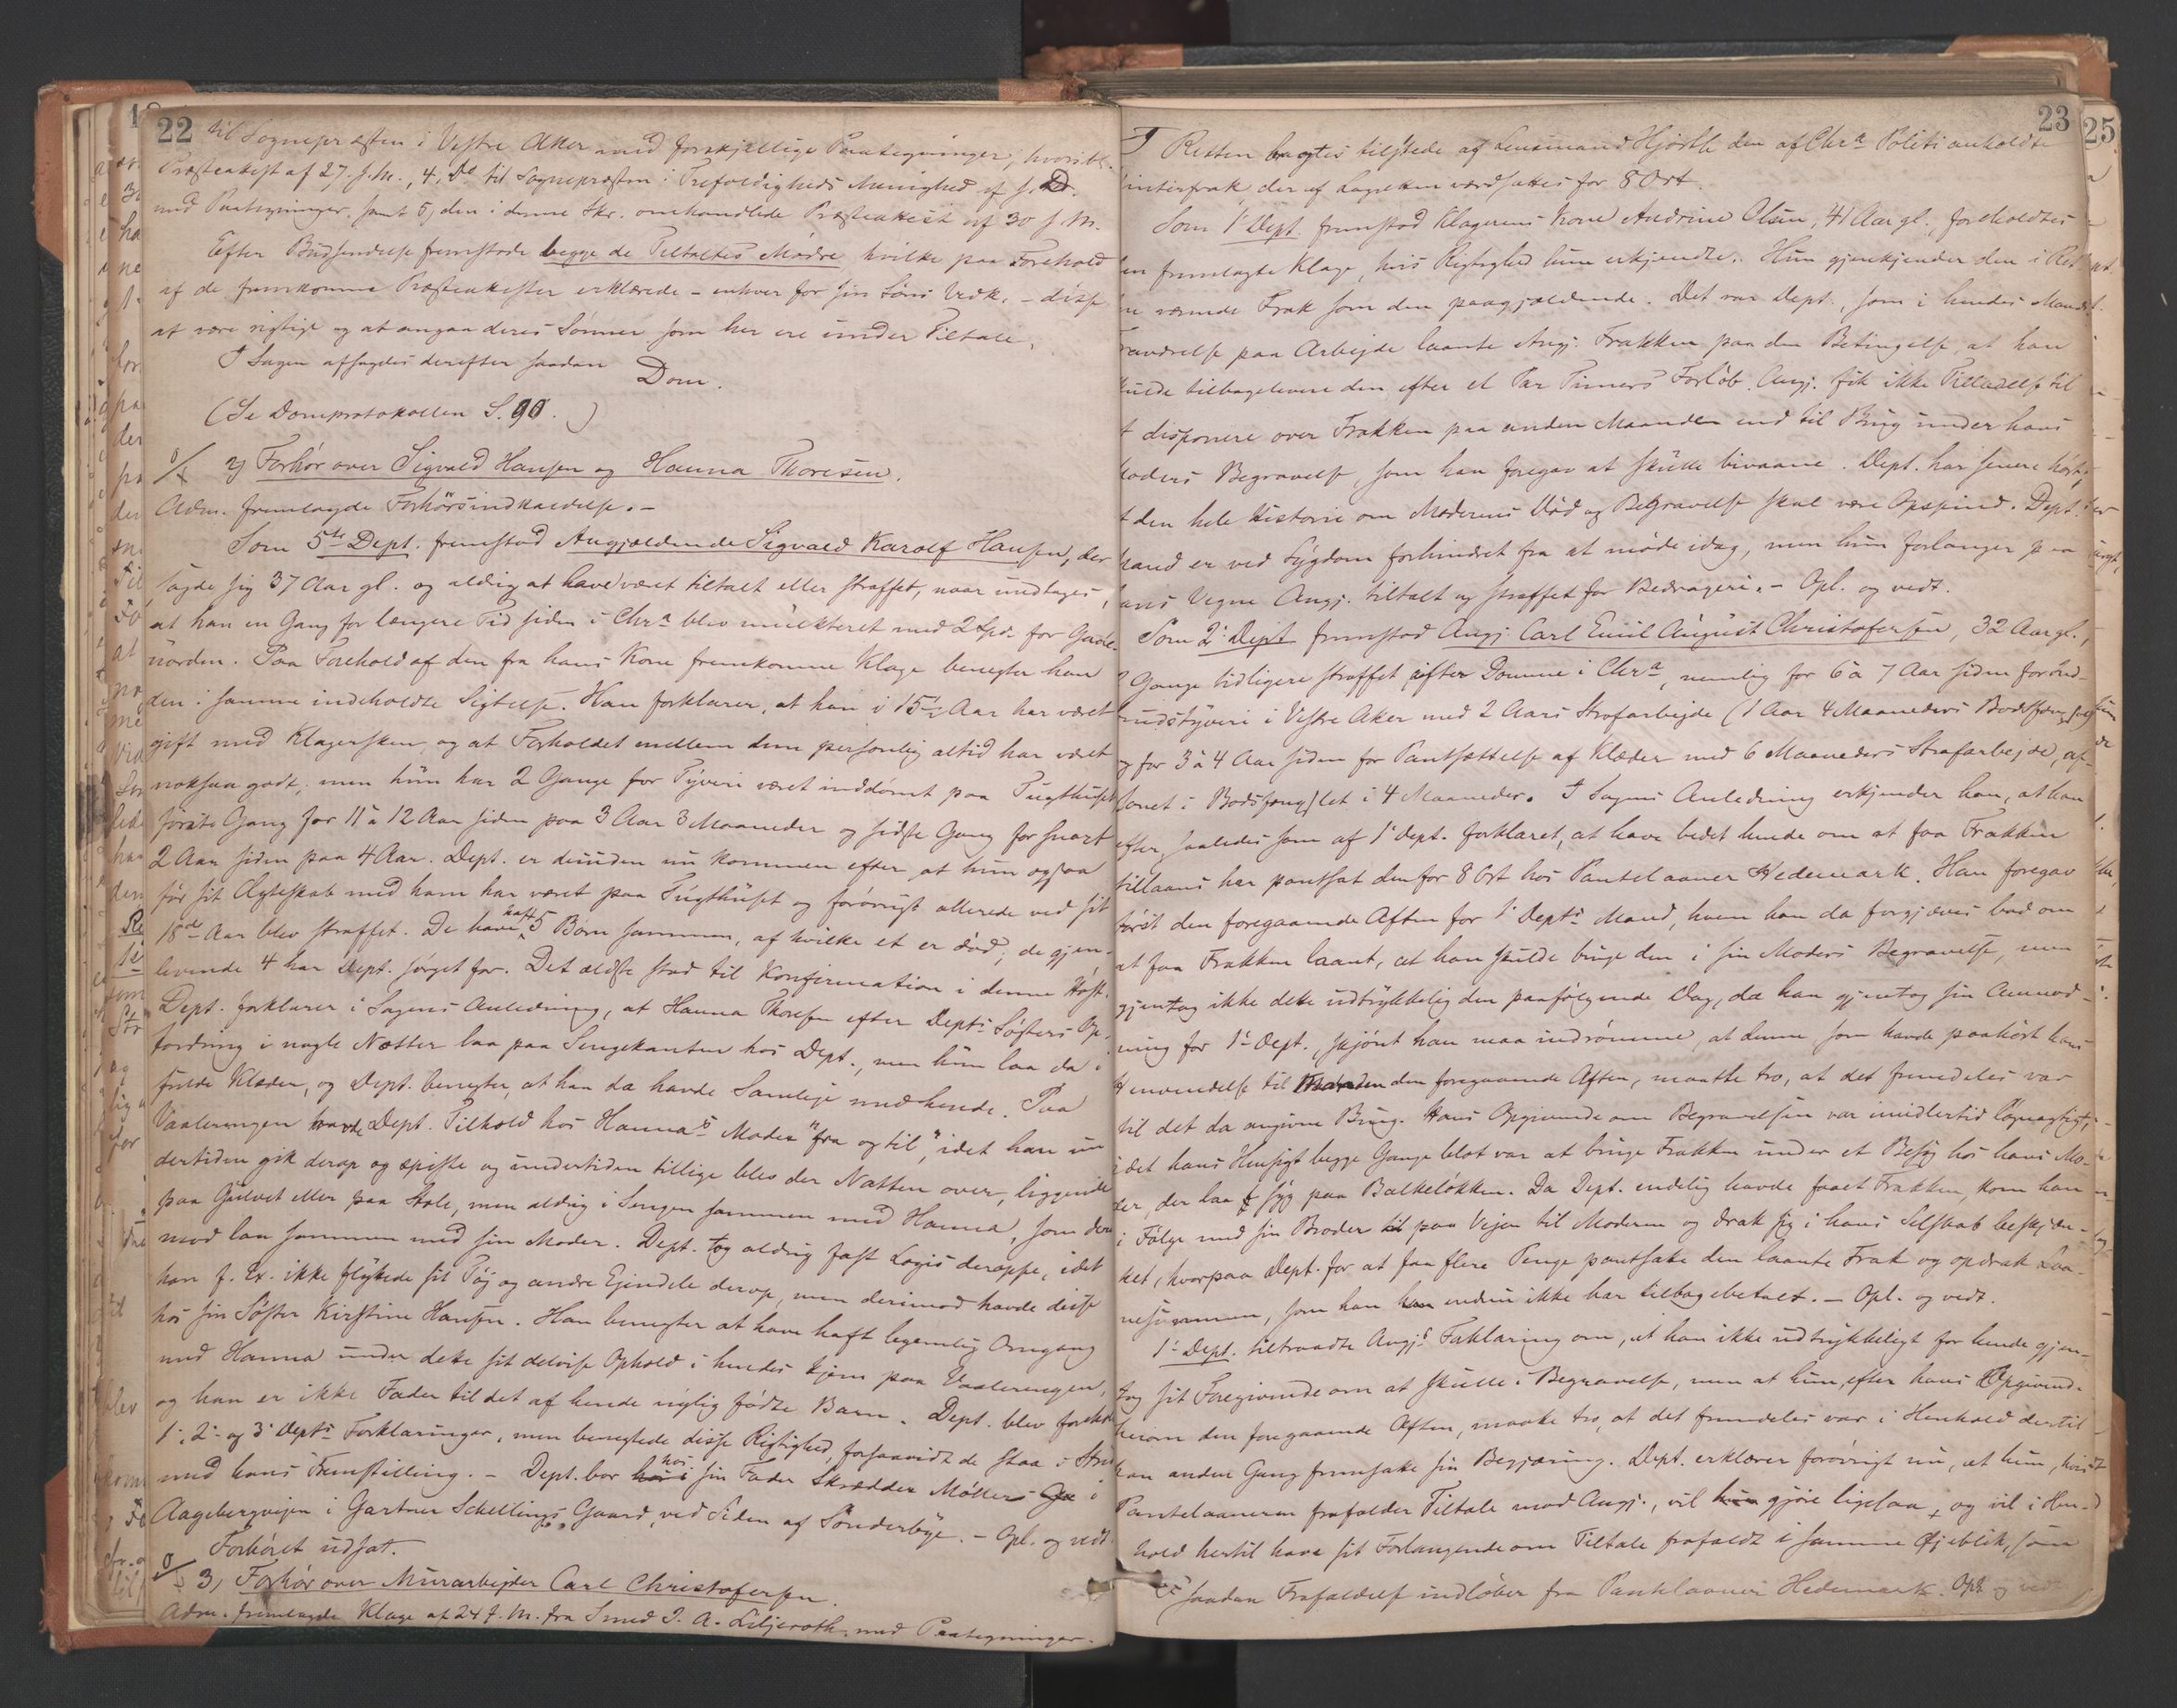 22
til Sognepræsten i Vestre Aker med forskjellige Paategninger, hvoribl.
Præsteattest af 27. f. M., 4, Do til Sognepræsten i Trefoldigheds Menighed af s. D.
med Paategninger, samt 5, den i denne Skr. omhandlede Præsteattest af 30 f. M.
Efter Budsendelse fremstode begge de Tiltaltes Mødre hvilke paa Forehold
af de fremkomne Præsteattester erklærede - enhver for sin Søns Vedk. - disse
at være rigtige og at angaa deres Sønner som her ere under Tiltale.
I Sagen afsagdes derefter saadan
Dom.
(Se Domprotokollen S. 90.)
2) Forhør over Sigvald Hansen og Hanna Thoresen.
Adm. fremlagde Forhørsindkaldelse. -
Som 5te Dept. fremstod Angjældende Sigvald Karolf Hansen, der
sagde sig 37 Aar gl. og aldrig at have været tiltalt eller straffet, naar undtages,
at han en Gang for længere Tid siden i Chra blev mulkteret med 2 Spd. for Gade-
uorden. Paa Forehold af den fra hans Kone fremkomne Klage benegter han
den i samme indeholdte Sigtelse. Han forklarer, at han i 15 1/2 Aar har været
gift med Klagersken, og at Forholdet mellem dem personlig altid har været
noksaa godt; men hun har 2 Gange for Tyveri været inddømt paa Tugthuset
første Gang for 11 à 12 Aar siden paa 3 Aar 3 Maaneder og sidste Gang for snart
2 Aar siden paa 4 Aar. Dept. er desuden nu kommen efter at hun ogsaa
før sit Ægteskab med ham har været paa Tugthuset og forøvrigt allerede ved sit
18de Aar blev straffet. De have haft 5 Børn sammen, af hvilke et er død; de gjen-
levende 4 har Dept. sørget for. Det ældste stod til Konfirmation i denne Høst.
Dept. forklarer i Sagens Anledning, at Hanna Thoresen efter Depts Søsters Op-
fordring i nogle Nætter laa paa Sengekanten hos Dept., men hun laa da i
fulde Klæder, og Dept. benegter, at han da havde Samleje med hende. Paa
Vaalerengen havde Dept. Tilhold hos Hannas Moder "fra og til", idet han un-
dertiden gik derop og spiste og undertiden tillige blev der Natten over, liggende
paa Gulvet eller paa Stole, men aldrig i Sengen sammen med Hanna, som der-
mod laa sammen med sin Moder. Dept. tog aldrig fast Logis deroppe, idet
han f. Ex. ikke flyttede sit Tøj og andre Ejendele derop, men derimod havde disse
hos sin Søster Kirstine Hansen. Han benegter at have haft legemlig Omgang
med Hanna under dette sit delvise Ophold i hendes Hjem paa Vaalerengen,
og han er ikke Fader til det af hende nylig fødte Barn. Dept. blev foreholdt
1', 2' og 3' Depts Forklaringer, men benegtede disse Rigtighed, forsaavidt de staa i Strid
med hans Fremstilling. - Dept. bor hos sin Fader Skrædder Møller i
Aagebergvejen i Gartner Schellings Gaard, ved Siden af Sønderbye. - Opl. og vedt.
Forhøret udsat.
3, Forhør over Murarbejder Carl Christofersen.
Adm. fremlagde Klage af 24 f. M. fra Smed J. A. Liljeroth med Paategninger.
23
I Retten bragtes tilstede af Lensmand Hjorth den af Chra Politi anholdte
interfrak der af Lagretten værdsattes for 8 Ort.
Som 1' Dept. fremstod Klagerens Kone Andrine Olsen, 41 Aar gl., foreholdtes
en fremlagte Klage, hvis Rigtighed hun erkjendte. Hun gjenkjender den i Ret-
ne værende Frak som den paagjældende. Det var Dept., som i hendes Mands
raværelse paa Arbejde laante Angj. Frakken paa den Betingelse, at han
kulde tilbagelevere den efter et Par Timers Forløb. Angj. fik ikke Tilladelse til
t disponere over Frakken paa anden Maande end til Brug under hans
oders Begravelse, som han foregav at skulle bivaane. Dept. har senere hørt,
t den hele Historie om Moderens Død og Begravelse skal være Opspind. Dept.
hand er ved Sygdom forhindret fra at møde idag, men hun forlanger paa
ans Vegne Angj. tiltalt og straffet for Bedrageri. - Opl. og vedt.
Som 2' Dept fremstod Angj. Carl Emil August Christofersen, 32 Aar gl.,
Gange tidligere straffet efter Domme i Chra, nemlig for 6 à 7 Aar siden for Ind-
brudstyveri i Vestre Aker med 2 Aars Strafarbejde (1 Aar 4 Maaneders Bodsfængsel)
og for 3 à 4 Aar siden for Pantsættelse af Klæder med 6 Maaneders Strafarbejde, af-
sonet i Bodsfængslet i 4 Maaneder. I Sagens Anledning erkjender han, at han
efter, saaledes som af 1' Dept. forklaret, at have bedet hende om at faa Frakken
tillaans har pantsat den for 8 Ort hos Pantelaaner Hedemark. Han foregav
først den foregaaende Aften for 1' Depts Mand, hvem han da forgjæves bad om
at faa Frakken laant, at han skulde bruge den i sin Moders Begravelse, men
gjentog ikke dette udtrykkelig den paafølgende Dag, da han gjentog sin Anmod-
ning for 1' Dept., skjønt han maa indrømme, at denne, som havde paahørt hans
Henvendelse til Manden den foregaaende Aften, maatte tro, at det fremdeles var
til det da angivne Brug. Hans Opgivende om Begravelsen var imidlertid løgnagtigt,
idet hans Hensigt begge Gange blot var at bruge Frakken under et Besøg hos hans Mo-
der, der laa syg paa Balkeløkken. Da Dept. endelig havde faaet Frakken, kom han
i Følge med sin Broder paa Vejen til Moderen og drak sig i hans Selskab beskjæn-
ket, hvorpaa Dept. for at faa flere Penge pantsatte den laante Frak og opdrak Laa-
nesummen, som han endnu ikke har tilbagebetalt. - Opl. og vedt.
1' Dept. tiltraadte Angjs Forklaring om, at han ikke udtrykkeligt for hende gjen-
tog sit Foregivende om at skulle i Begravelse, men at hun, efter hans Opgivende
herom den foregaaende Aften, maatte tro, at det fremdeles var i Henhold dertil
han anden Gang fremsatte sin Begjæring. Dept. erklærer forøvrigt nu, at hun, hvis
Pantelaaneren frafalder Tiltale mod Angj., vil gjøre ligesaa, og vil i Hen-
hold hertil have sit Forlangende om Tiltale frafaldt i samme Øjeblik, som
saadan Frafaldelse indløber fra Pantelaaner Hedemark. Opl. og vedt
25